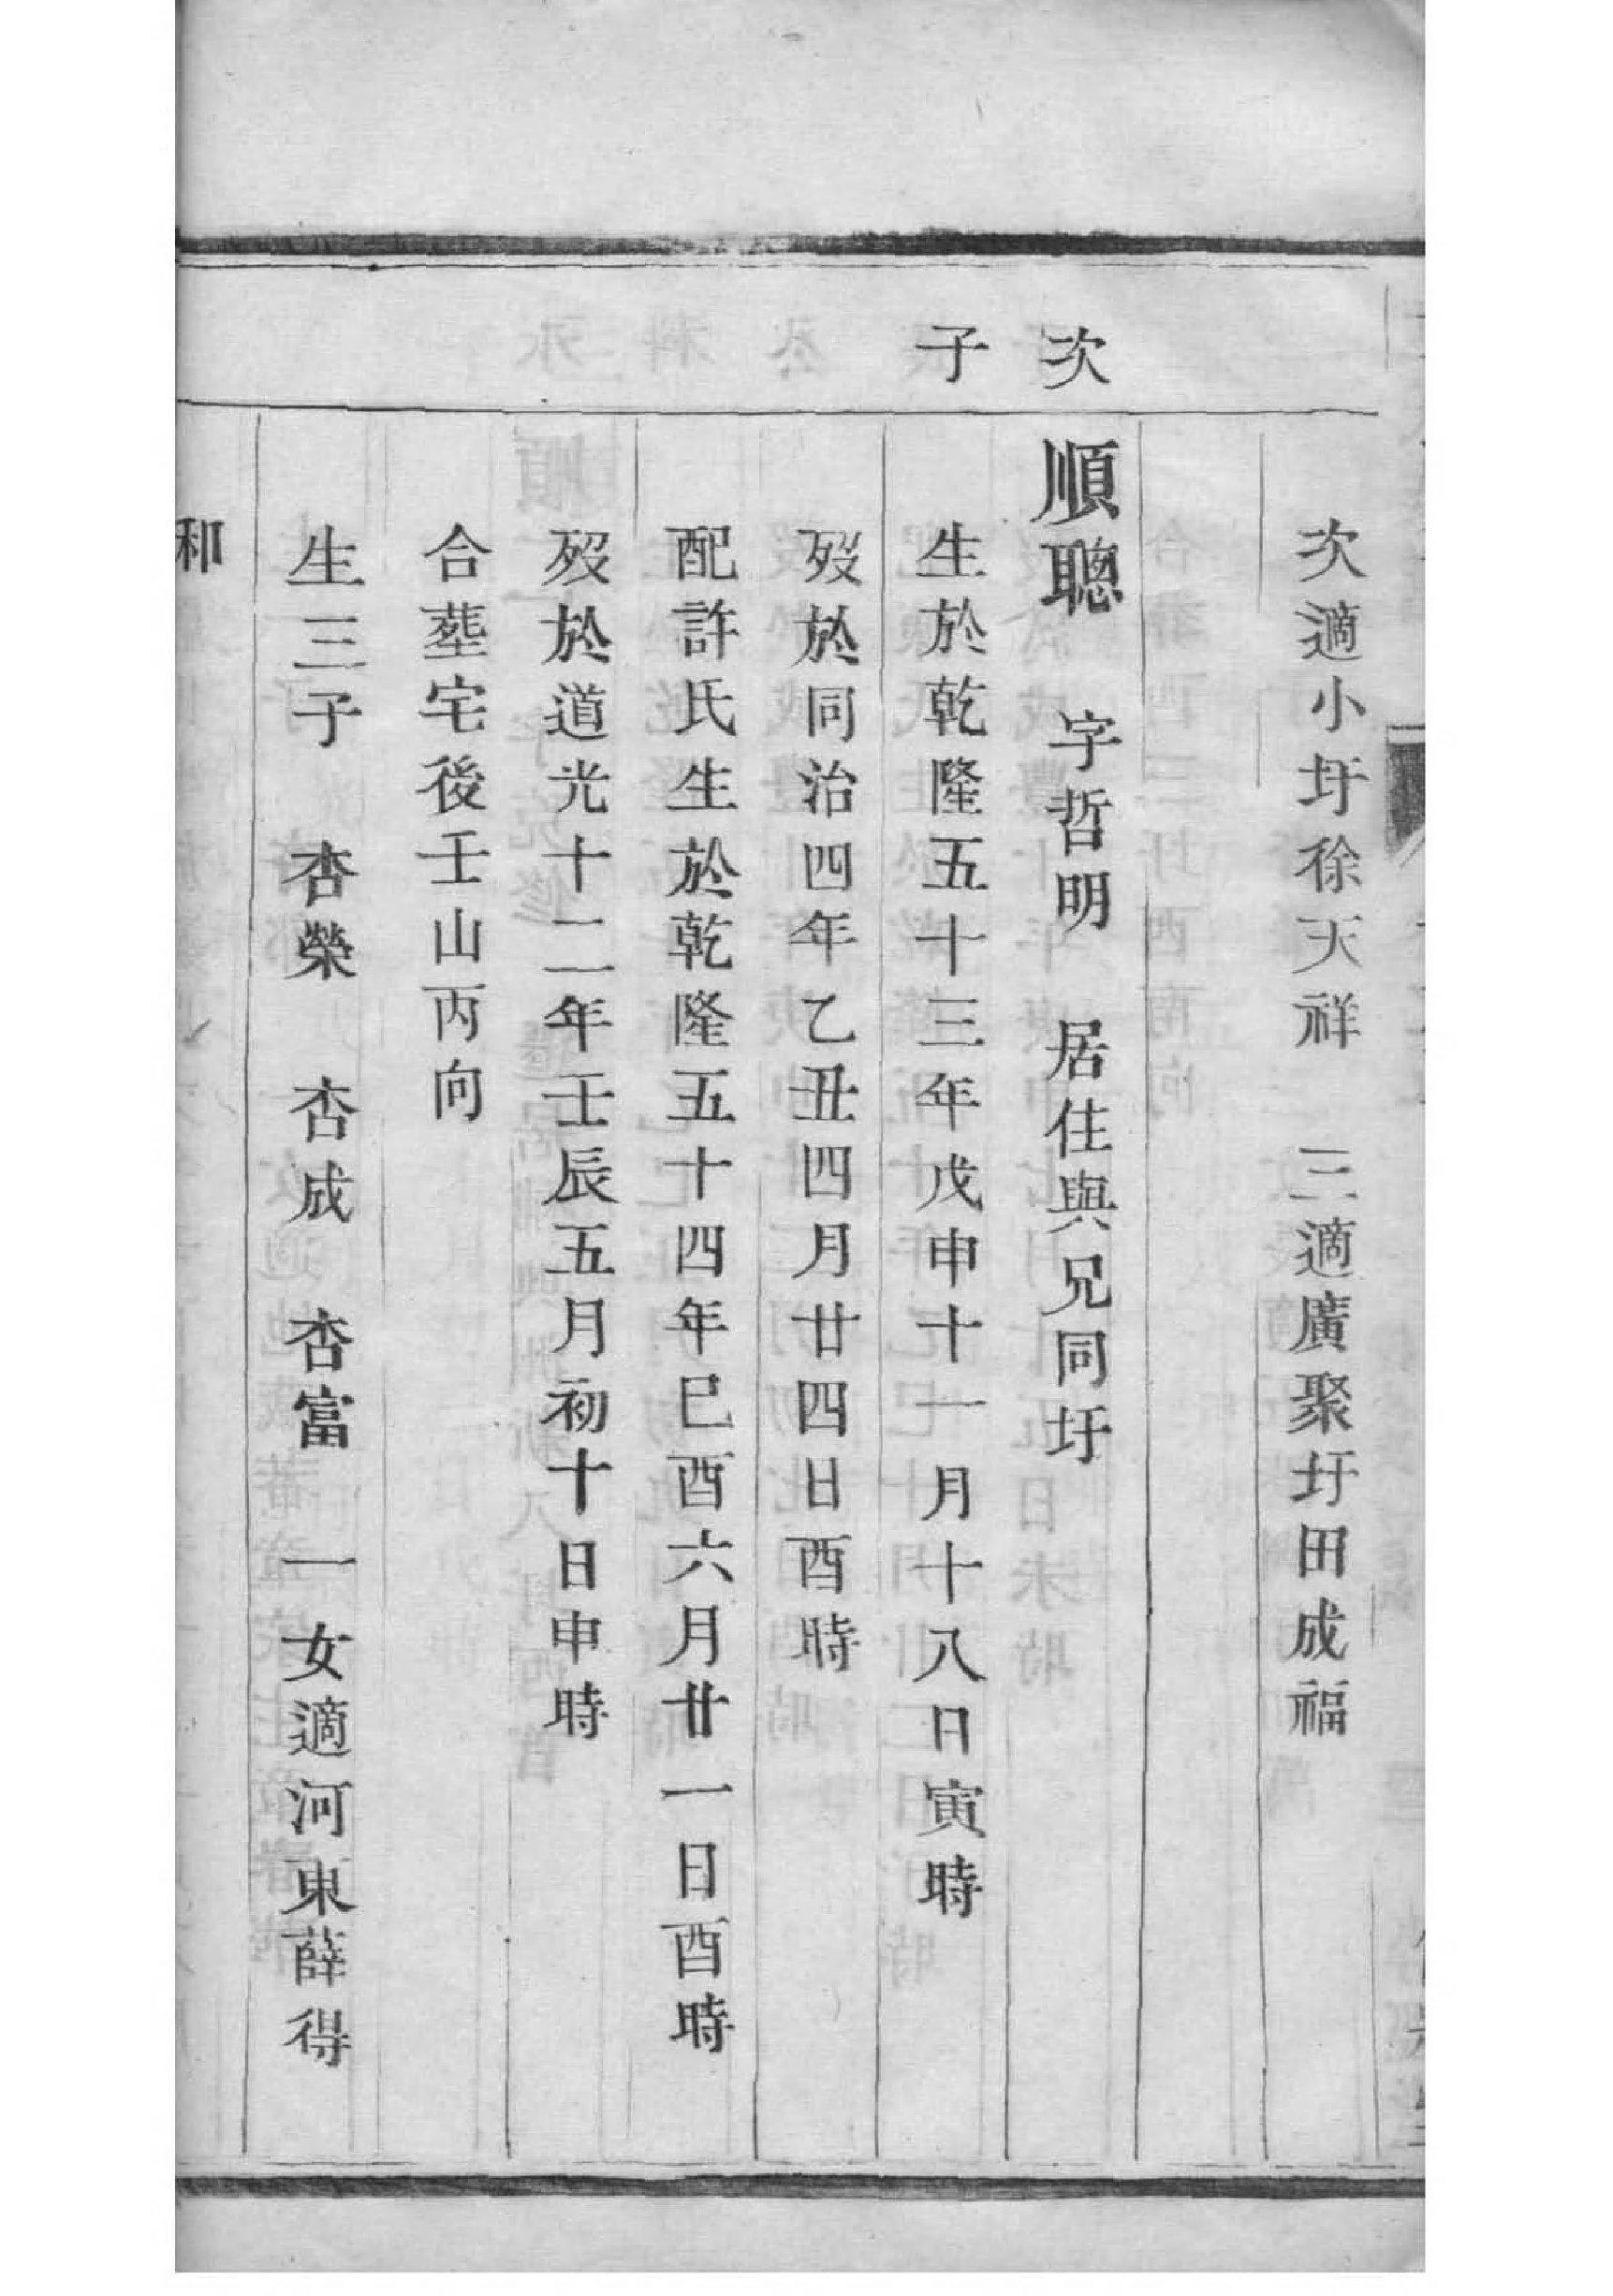 次適小圩徐天祥　三適廣聚圩田成福
次子
順聰　字哲明　居住與兄同圩
生於乾隆五十三年戊申十一月十八日寅時
歿於同治四年乙丑四月廿四日酉時
配許氏生於乾隆五十四年巳酉六月廿一日酉時
歿於道光十二年壬辰五月初十日申時
合塟宅後壬山丙向
生三子　杏榮　杏成　杏富　一女適河東薛得
和